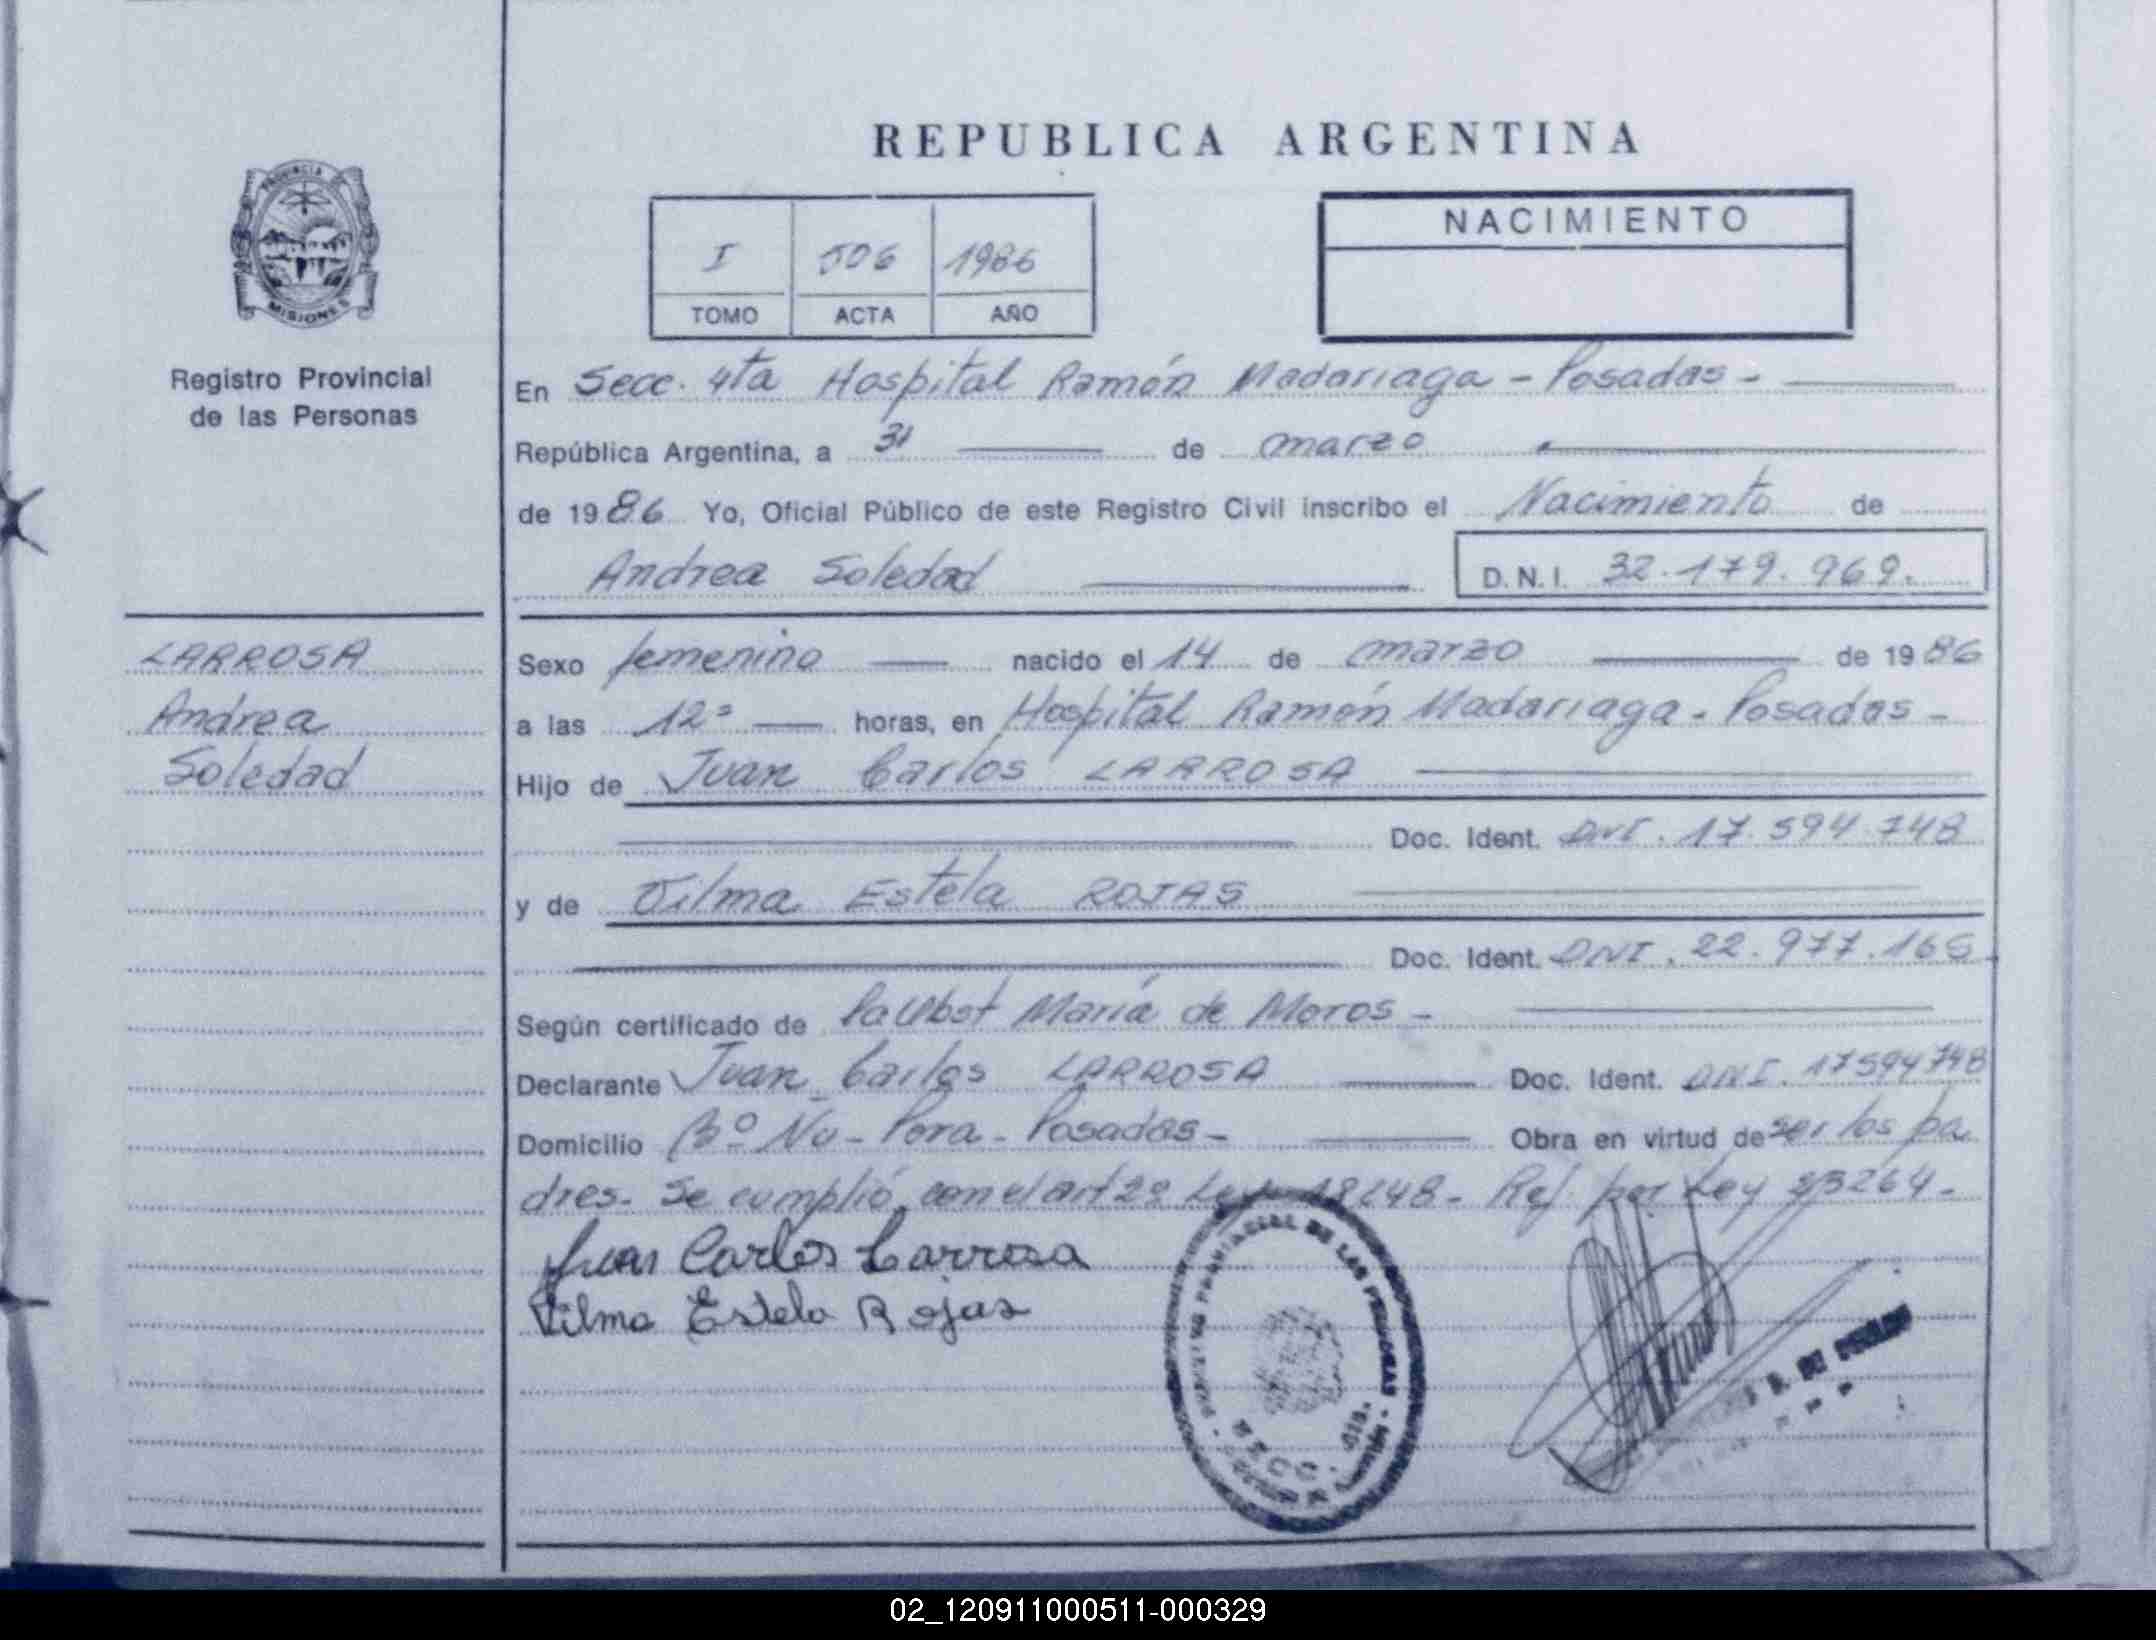 REPUBLICA ARGENTINA
PROVINCIA
MISIONES
Registro Provincial
de las Personas
I 506 1986
TOMO ACTA AÑO
NACIMIENTO
En Secc. 4ta Hospital Ramón Madariaga - Posadas -
República Argentina, a 31 de marzo
de 1986 Yo, Oficial Público de este Registro Civil inscribo el Nacimiento de
Andrea Soledad D.N.I. 32.179.969.
LARROSA
Andrea
Soledad
Sexo femenino nacido el 14 de marzo de 1986
a las 12º horas, en Hospital Ramón Madariaga - Posadas -
Hijo de Juan Carlos LARROSA
Doc. Ident. DNI. 17.594.748
y de Vilma Estela ROJAS
Doc. Ident. DNI. 22.977.165
Según certificado de María de Moros -
Declarante Juan Carlos LARROSA Doc. Ident. DNI. 17594748
Domicilio Bº Ñu - Pora - Posadas - Obra en virtud de ser los pa
dres. Se cumplió con el art 2º Ley 18248 - Ref. por Ley 23264 -
Juan Carlos Larrosa
Vilma Estela Rojas
PROVINCIAL DE LAS PERSONAS
02_120911000511-000329